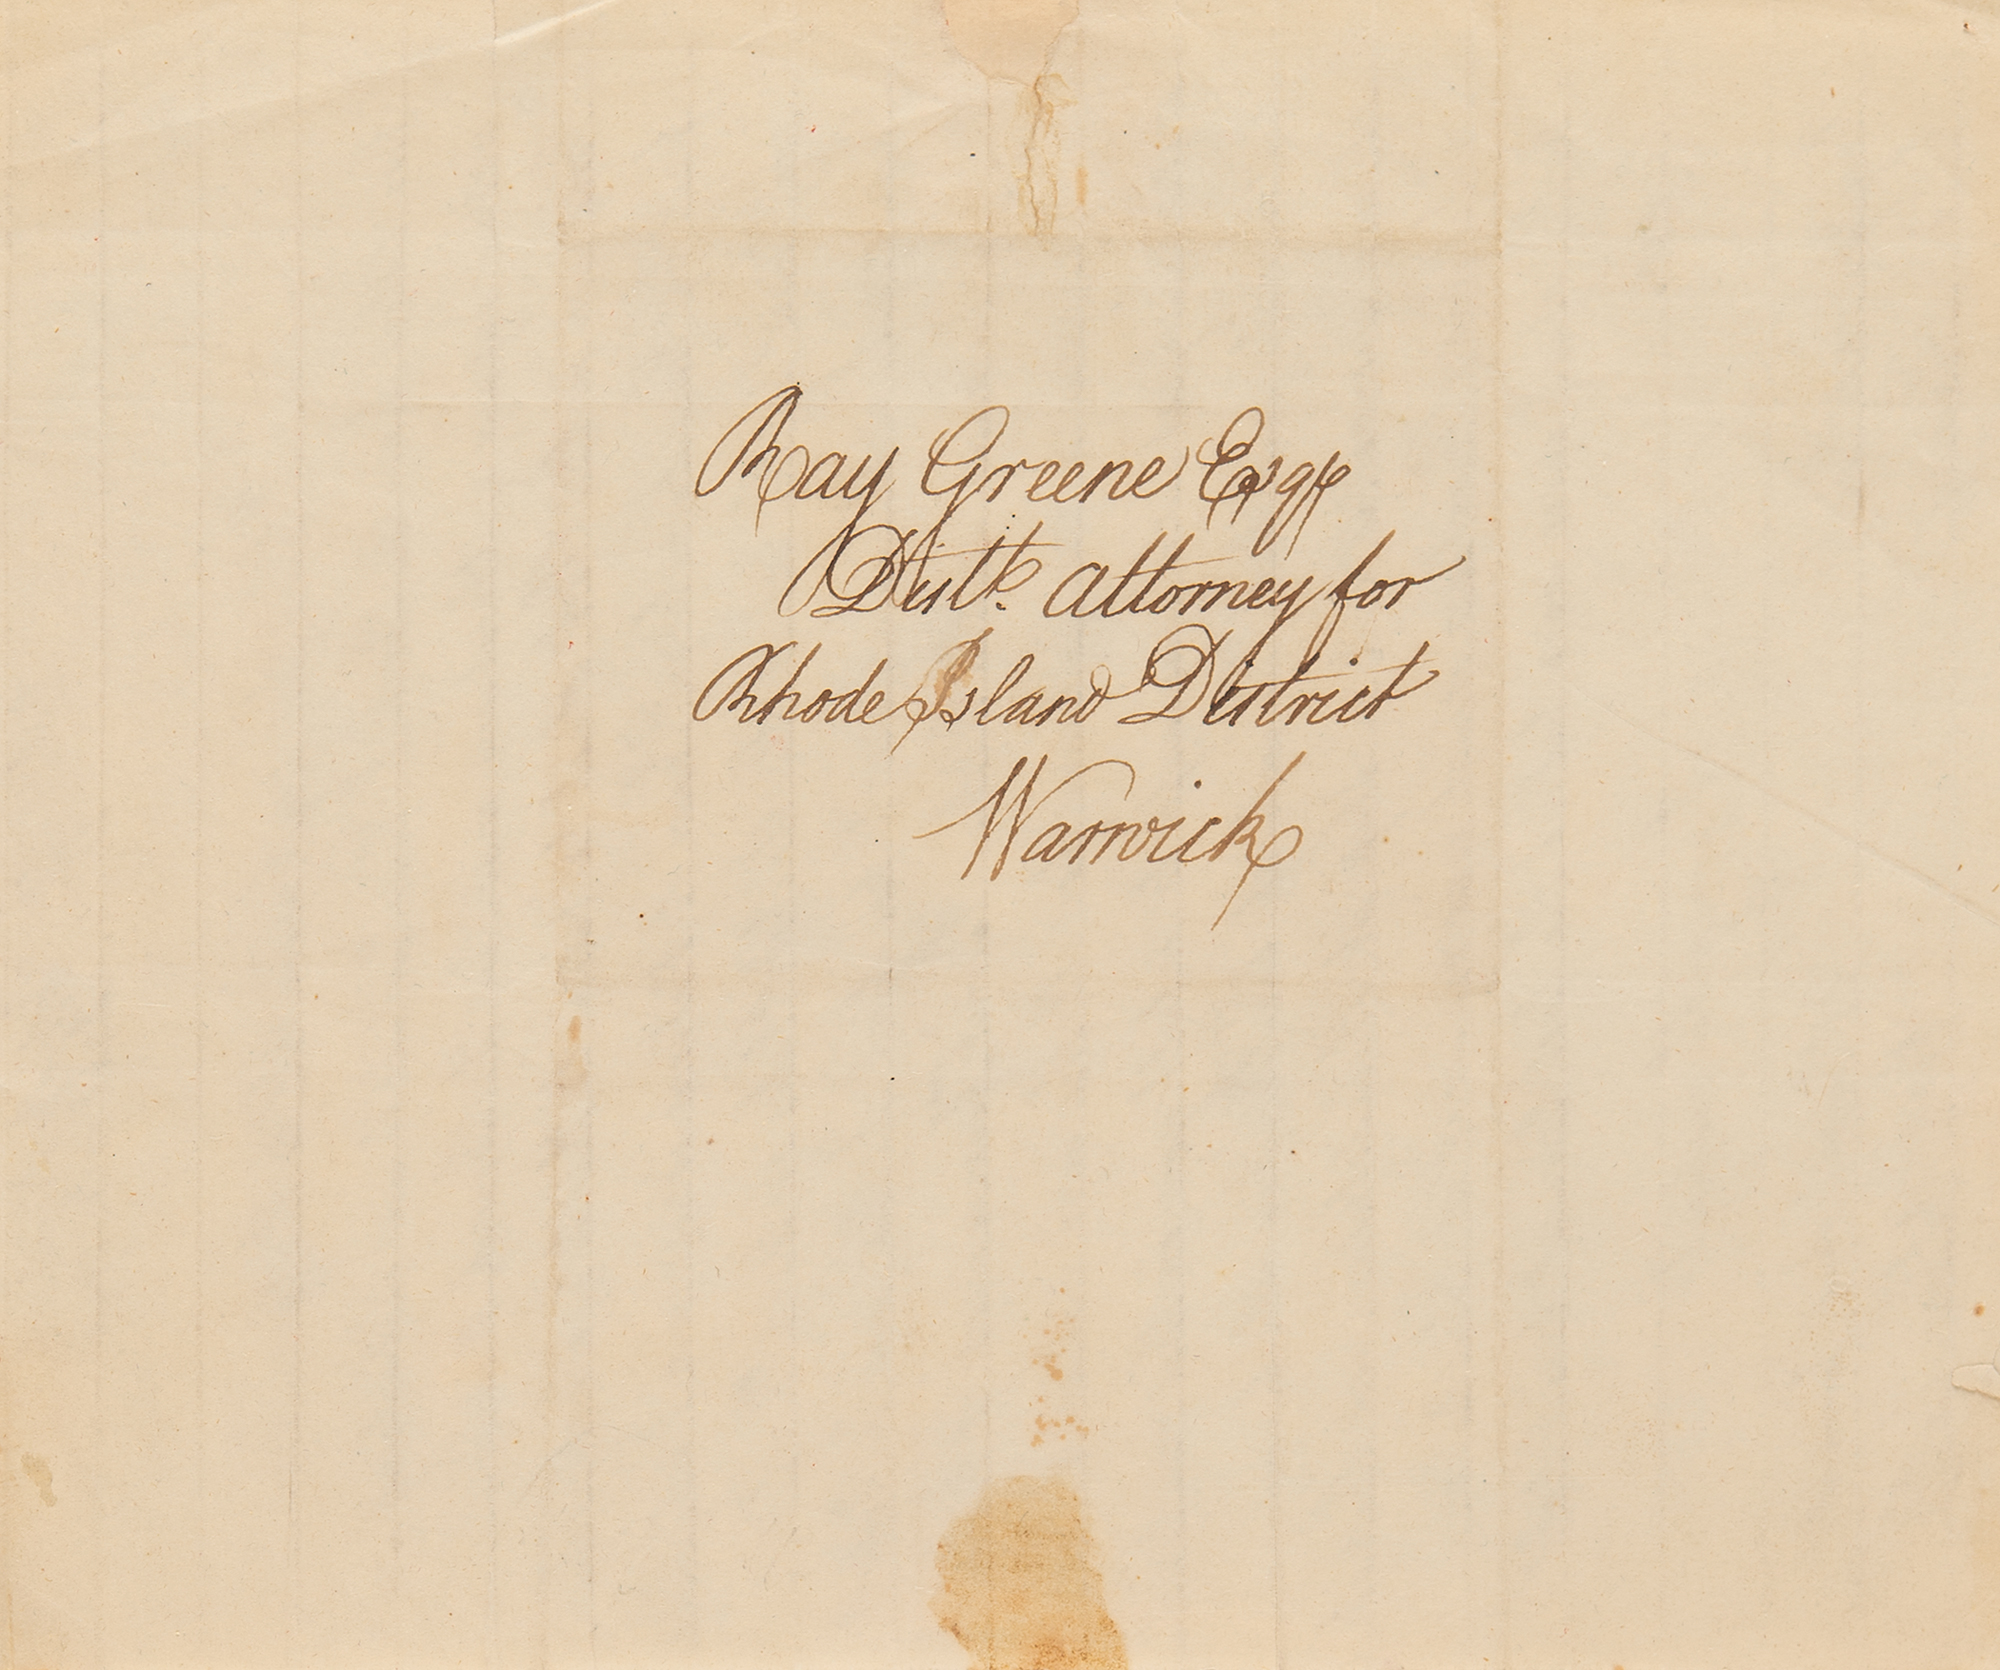 Ray Greene Esqr
Distt. Attorney for
Rhode Island District
Warwick